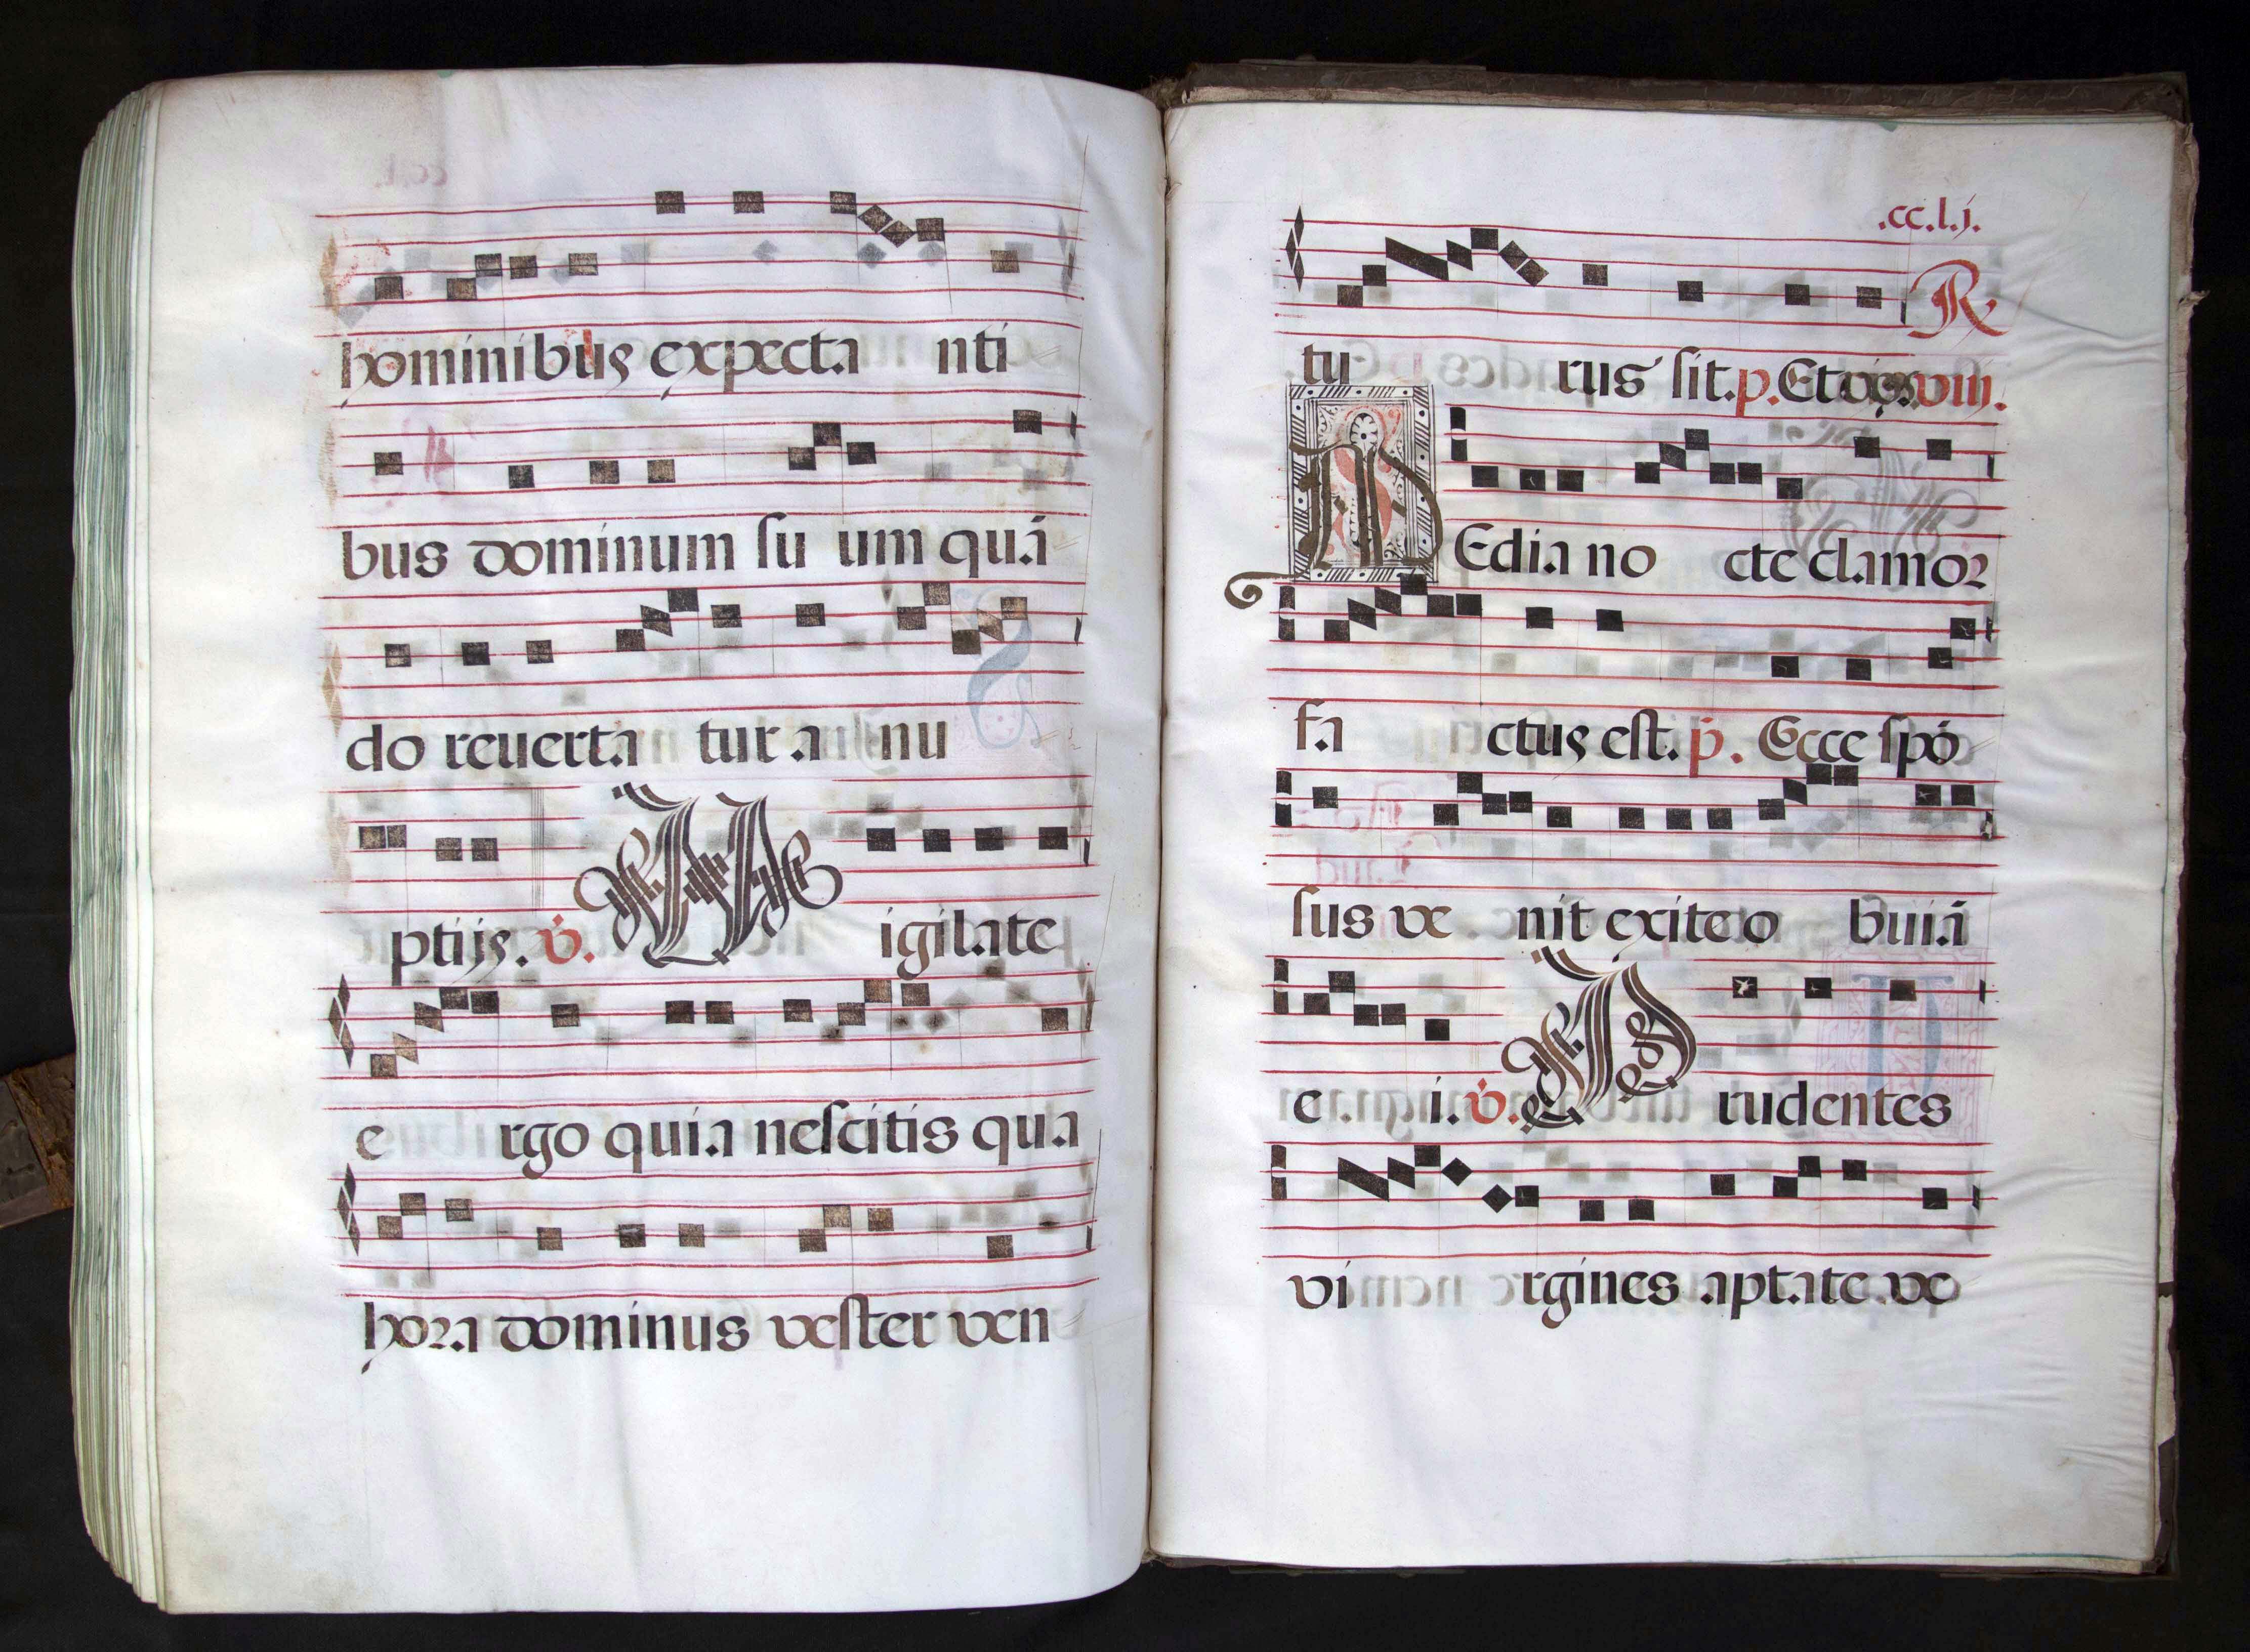 hominibus expecta nti
bus dominum su um quā
do reuerta tur a nu
ptijs. v̇. Vigilate
e rgo quia nescitis qua
hora dominus vester ven
.cc.l.j.
R.
tu rus sit. p. Et vos. viij.
MEdia no cte clamor
fa ctus est. p. Ecce spō
sus ve nit exite o buiā
e i. v̇. Prudentes
vi rgines aptate ve